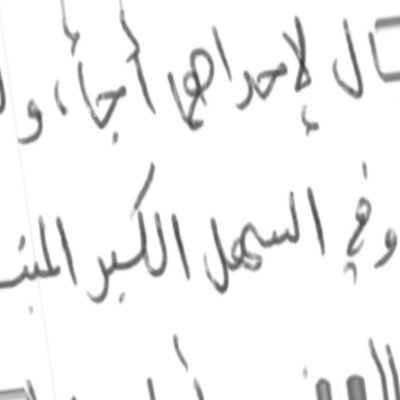 ال لإحداها أجأ، و
وفي السهل الكبير المنبـ